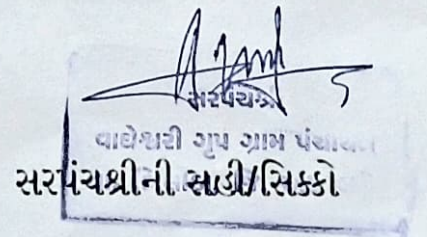 સરપંચશ્રી
વાઘેશ્વરી ગૃપ ગ્રામ પંચાયત
સરપંચશ્રીની સહી/સિક્કો